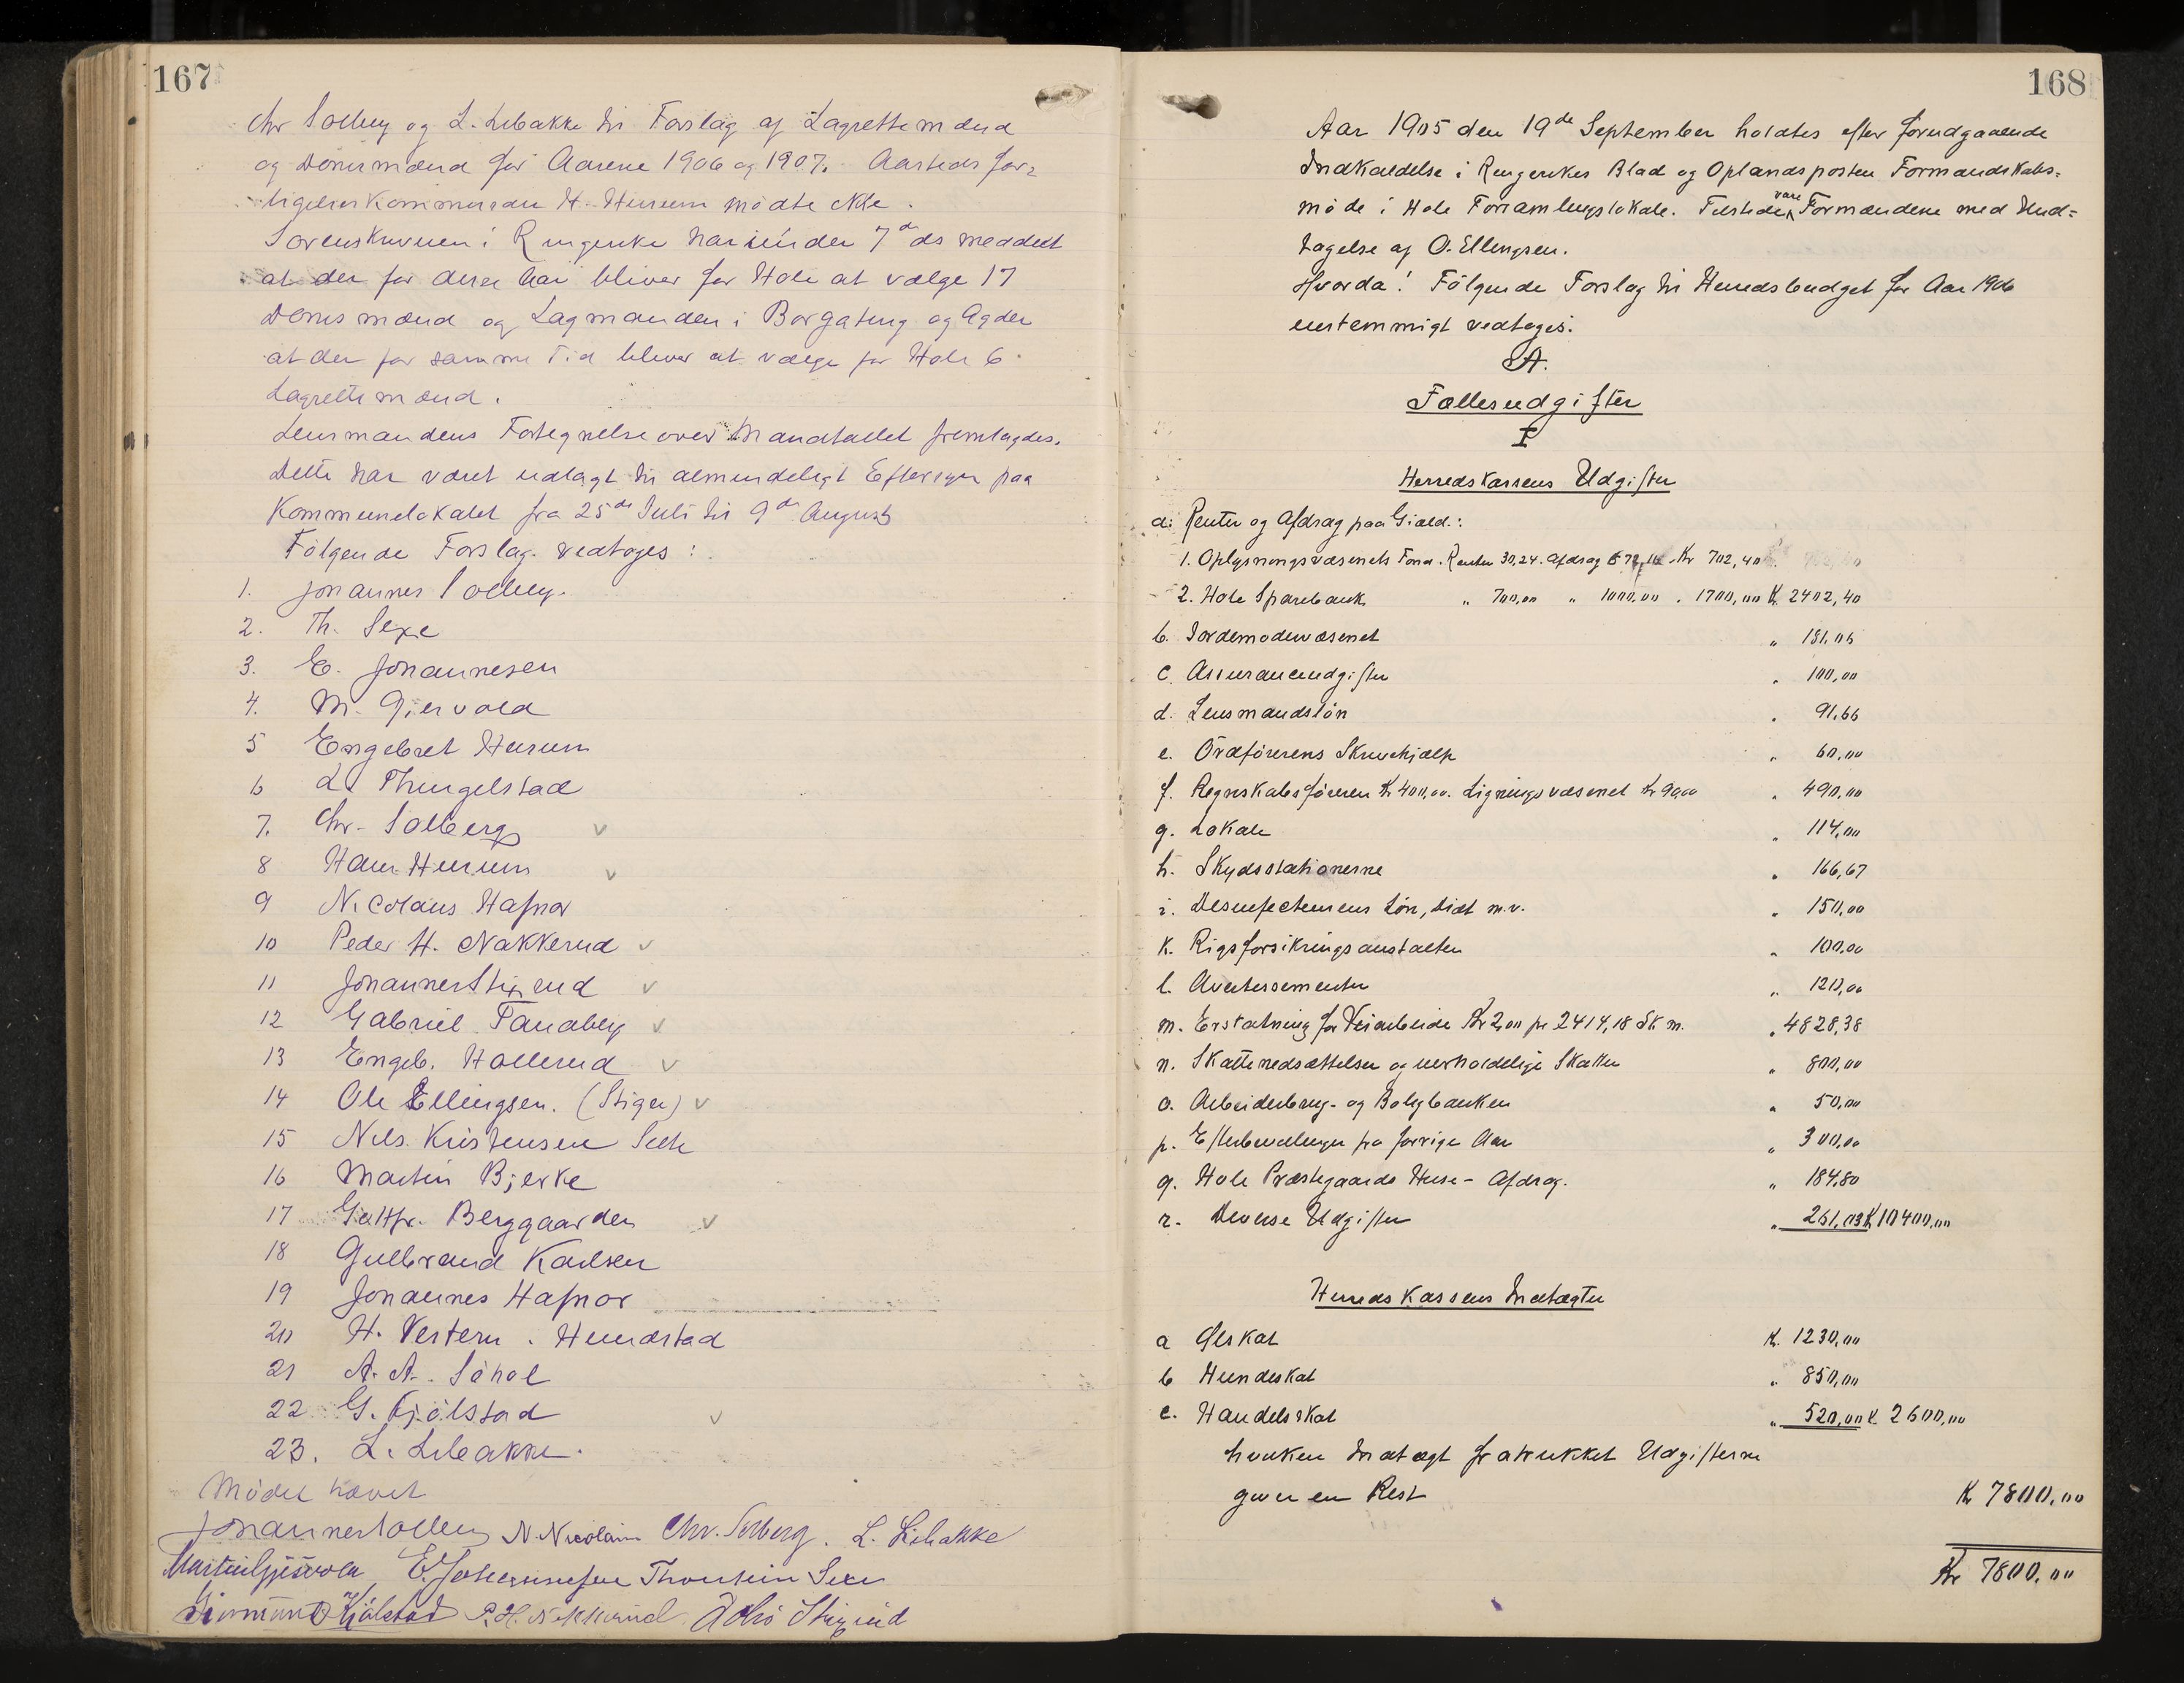 167
Chr Solberg og L. Libakke til Forslag af Lagrettemænd
og Domsmænd for Aarene 1906 og 1907. Aasteds for=
ligelseskommissær H. Hurum mødte ikke.
Sorenskriveren i Ringerike har under 7de ds meddelt
at der for disse Aar bliver for Hole at vælge 17
Domsmænd og Lagmanden i Borgating og Agder
at der for samme Tid bliver at vælge for Hole 6
Lagrettemænd.
Lensmandens Fortegnelse over Mandtallet fremlagdes.
Dette har været udlagt til almindeligt Eftersyn paa
Kommunelokalet fra 25de Juli til 9de August
Følgende Forslag vedtoges:
1. Johannes Solberg
2. Th. Sexe
3. E. Johannesen
4. M. Gjesvold
5 Engebret Hurum
6 L. Thingelstad
7. Chr. Solberg
8 Hans Hurum
9 Nicolaus Hafnor
10 Peder H. Nakkerud
11 Johannes Stixrud
12 Gabriel Tandberg
13 Engeb. Hollerud
14 Ole Ellingsen. (Stigen)
15 Nils Kristensen
16 Martin Bjerke
17 Berggaarden
18 Gulbrand Karlsen
19 Johannes Hafnor
20 H. Vestern. Hundstad
21 A. A. Søhol
22 G. Fjølstad
23. L. Libakke.
Mødet hævet
Johannes Solberg N. Nicolaisen Chr. Solberg. L. Libakke
Martin Gjesvold E. Johannesen Thorstein Sexe
Fjølstad P. H. Nakkerud Stixrud
168
Aar 1905 den 19de September holdtes efter forudgaaende
Indkaldelse i Ringerikes Blad og Oplandsposten Formandskabs=
møde i Hole Forsamlingslokale. Tilstede vare Formændene med Und=
tagelse af O. Ellingsen.
Hvorda! Følgende Forslag til Herredsbudget for Aar 1906
enstemmigt vedtoges:
A.
Fællesudgifter
I
Herredskassens Udgifter
a. Renter og Afdrag paa Gjæld.:
1. Oplysningsvæsenets Fond. Renter 30,24. Afdrag 672,16. Kr 702,40
2. Hole Sparebank " 700,00 " 1000,00 " 1700,00 Kr 2402,40
b. Jordemodervæsenet " 181,06
c. Assuranceudgifter " 100,00
d. Lensmandsløn " 91,66
e. Ordførerens Skrivehjælp " 60,00
f. Regnskabsføreren Kr 400,00. Ligningsvæsenet Kr 90,00 " 490,00
g. Lokale " 114,00
h. Skydsstationerne " 166,67
i. Desinfecteurens Løn, Diæt m.v. " 150,00
k. Rigsforsikringsanstalten " 100,00
l. Avertissementer " 120,00
m. Erstatning for Veiarbeide Kr 2,00 pr 2414,18 Sk m. " 4828,38
n. Skattenedsættelser og uerholdelige Skatter " 800,00
o. Arbeiderbrug- og Boligbanken " 50,00
p. Efterbevilgninger fra forrige Aar " 300,00
q. Hole Præstegaards Huse - Afdrag. " 184,80
r. Diverse Udgifter " 261,03 Kr 10400,00
Herredskassens Indtægter
a Ølskat Kr. 1230,00
b Hundeskat " 850,00
c. Handelsskat " 520,00 Kr 2600,00
hvilken Indtægt fratrukket Udgifterne
giver en Rest Kr 7800,00
Kr 7800,00